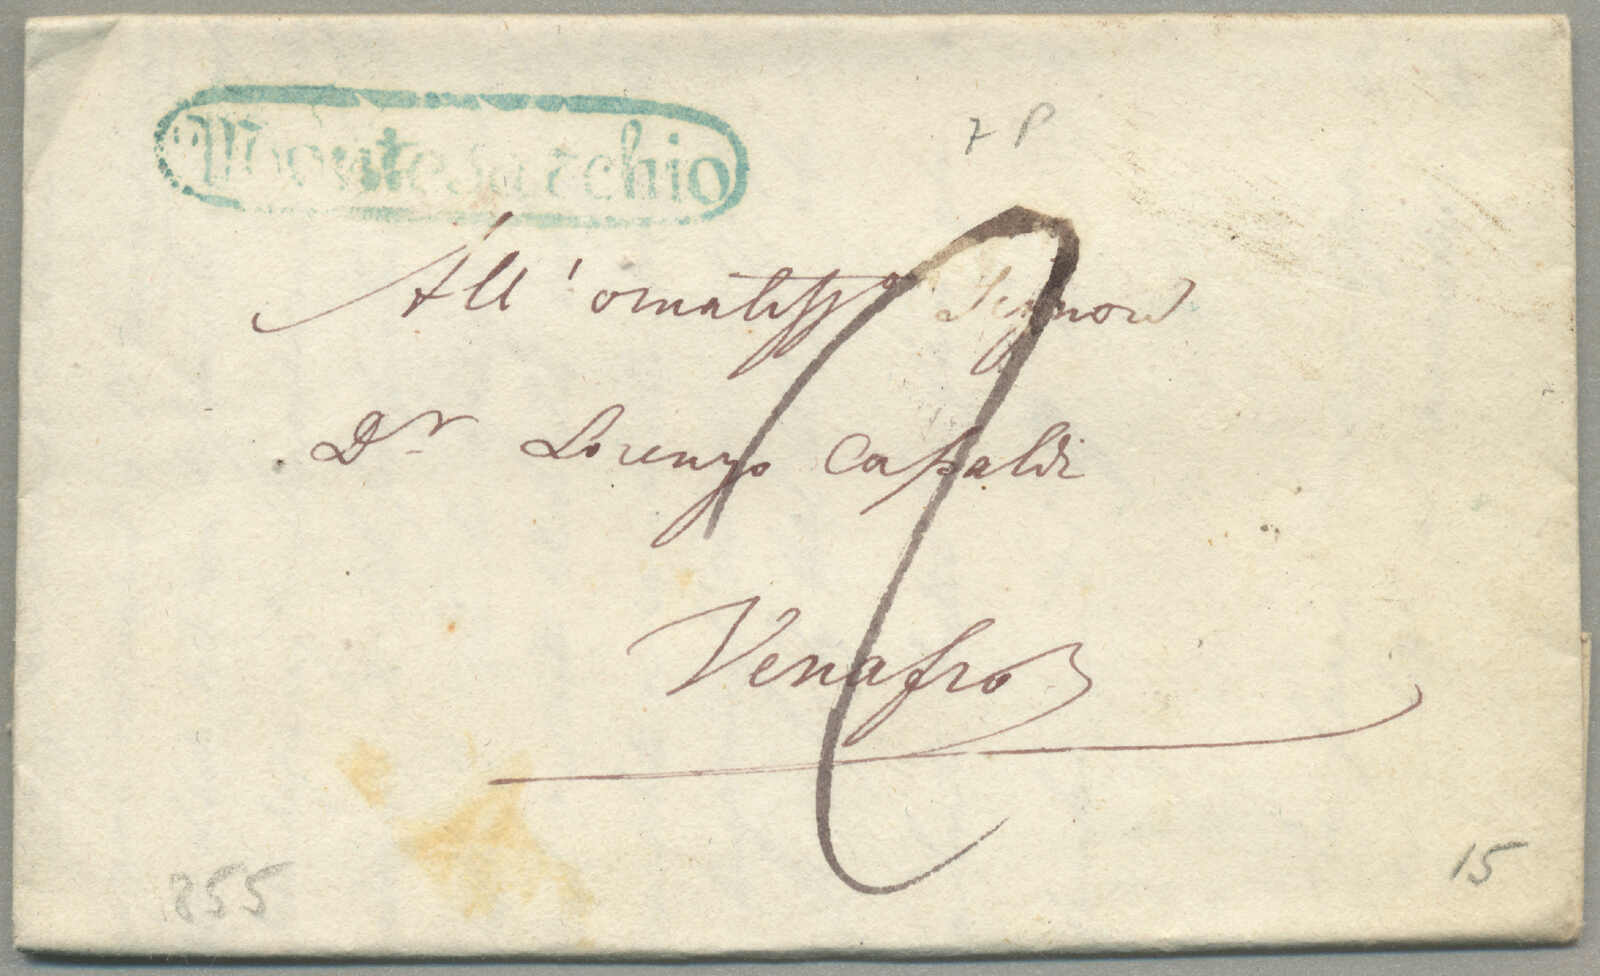 Montesarchio
7 P
All' ornatiss° Signore
Dr Lorenzo Capaldi
Venafro
855
15